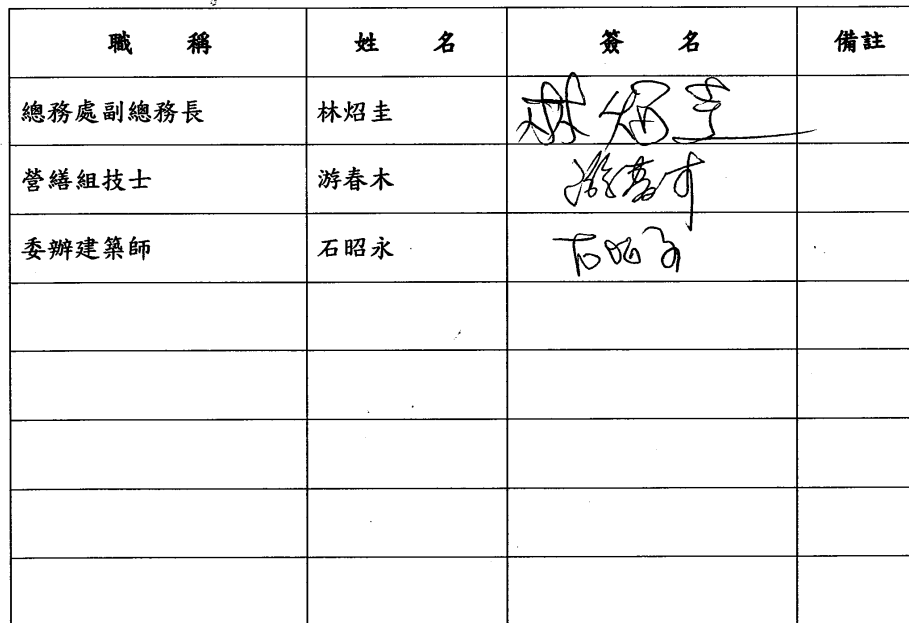 職稱 姓名 簽名 備註
總務處副總務長 林炤圭 林炤圭
營繕組技士 游春木 游春木
委辦建築師 石昭永 石昭永